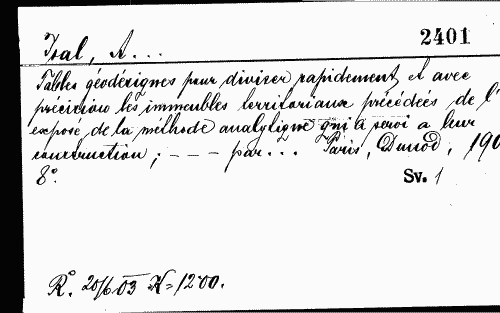 Isal, A...
2401
Tables géodésignes pour diviser rapidement, et avec
précision les immeubles territoriaux précédées de l'
expose de la méthode analyligne qui a servi a leur
construction; - - - par... Paris, Dunod, 190
8°.
Sv. 1
R°. 20/6 03 K=12·00.